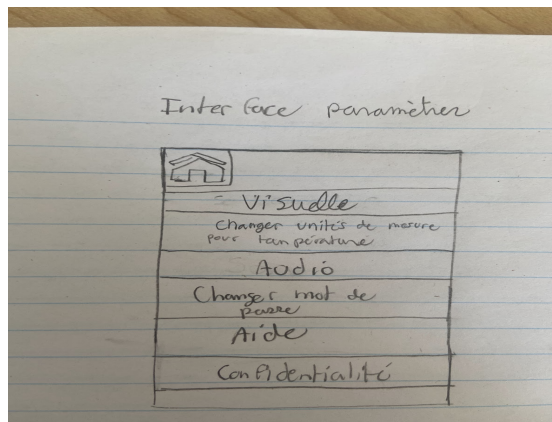 Interface paramètres
Visuelle
Changer unités de mesure
pour température
Audio
Changer mot de
passe
Aide
Confidentialité